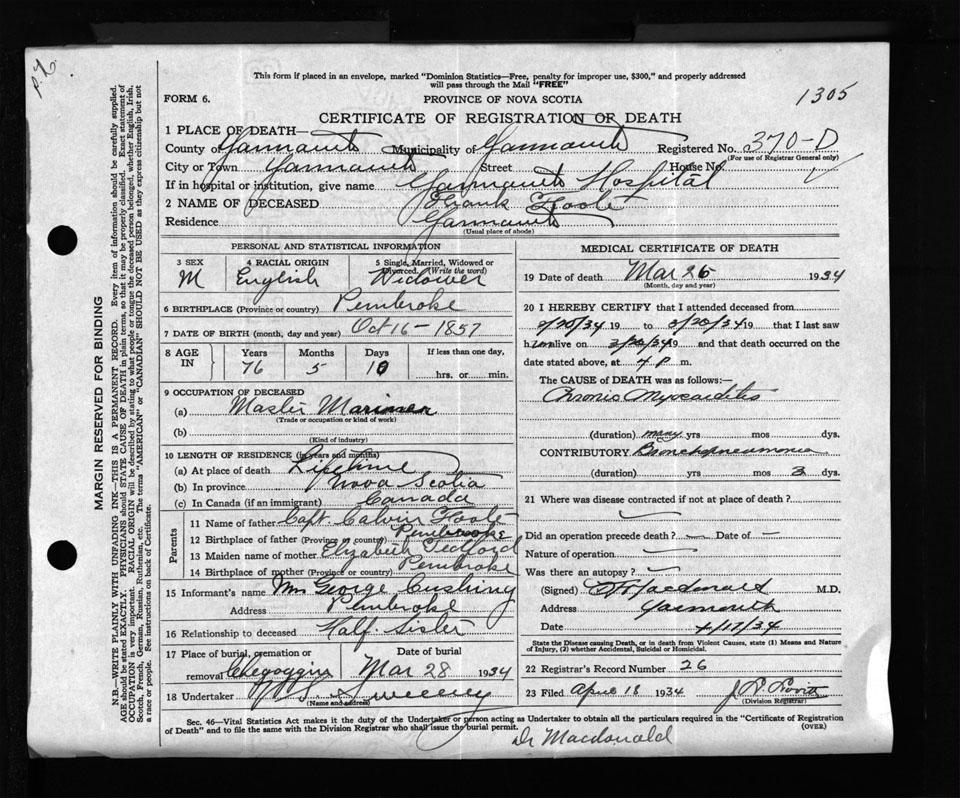 This form if placed in an envelope, marked "Dominion Statistics—Free, penalty for improper use, $300," and properly addressed
will pass through the Mail "FREE"
FORM 6. PROVINCE OF NOVA SCOTIA 1305
CERTIFICATE OF REGISTRATION OF DEATH
1 PLACE OF DEATH—
County of Yarmouth Municipality of Yarmouth Registered No. 370-D
(For use of Registrar General only)
City or Town Yarmouth Street House No.
If in hospital or institution, give name Yarmouth Hospital
2 NAME OF DECEASED Frank Foote
Residence Yarmouth
(Usual place of abode)
PERSONAL AND STATISTICAL INFORMATION
3 SEX 4 RACIAL ORIGIN 5 Single, Married, Widowed or
Divorced. (Write the word)
M English Widower
6 BIRTHPLACE (Province or country) Pembroke
7 DATE OF BIRTH (month, day and year) Oct 16 - 1857
8 AGE IN Years Months Days If less than one day,
76 5 10 hrs. or min.
9 OCCUPATION OF DECEASED
(a) Master Mariner
(Trade or occupation or kind of work)
(b)
(Kind of industry)
10 LENGTH OF RESIDENCE (in years and months)
(a) At place of death Lifetime
(b) In province Nova Scotia
(c) In Canada (if an immigrant) Canada
Parents
11 Name of father Capt. Calvin Foote
12 Birthplace of father (Province or country) Pembroke
13 Maiden name of mother Elizabeth Tedford
14 Birthplace of mother (Province or country) Pembroke
15 Informant's name Mrs George Cushing
Address Pembroke
16 Relationship to deceased Half Sister
17 Place of burial, cremation or Date of burial
removal Chegoggin Mar 28 1934
18 Undertaker Sweeney
(Name and address)
MEDICAL CERTIFICATE OF DEATH
19 Date of death Mar 26 1934
(Month, day and year)
20 I HEREBY CERTIFY that I attended deceased from
/20/34 19 to /20/34 19 that I last saw
h im alive on 3/ /34 19 and that death occurred on the
date stated above, at 4 P m.
The CAUSE of DEATH was as follows:
Chronic Myocarditis
(duration) many yrs mos dys.
CONTRIBUTORY Bronchopneumonia
(duration) yrs mos 3 dys.
21 Where was disease contracted if not at place of death?
Did an operation precede death? — Date of —
Nature of operation
Was there an autopsy?
(Signed) Macdonald M.D.
Address Yarmouth
Date 4/17/34
State the Disease causing Death, or in death from Violent Causes, state (1) Means and Nature
of Injury, (2) whether Accidental, Suicidal or Homicidal.
22 Registrar's Record Number 26
23 Filed April 18 1934 Lovitt
(Division Registrar)
Sec. 46—Vital Statistics Act makes it the duty of the Undertaker or person acting as Undertaker to obtain all the particulars required in the "Certificate of Registration
of Death" and to file the same with the Division Registrar who shall issue the burial permit. (OVER)
Dr Macdonald
MARGIN RESERVED FOR BINDING
N.B.—WRITE PLAINLY WITH UNFADING INK—THIS IS A PERMANENT RECORD. Every item of information should be carefully supplied.
AGE should be stated EXACTLY. PHYSICIANS should STATE CAUSE OF DEATH in plain terms, so that it may be properly classified. Exact statement of
OCCUPATION is very important. RACIAL ORIGIN will be described by stating to what people or tongue the deceased person belonged, whether English, Irish,
Scotch, French, German, Russian, Ruthenian, etc. The terms "AMERICAN" or "CANADIAN" SHOULD NOT BE USED as they express citizenship but not
a race or people. See instructions on back of Certificate.